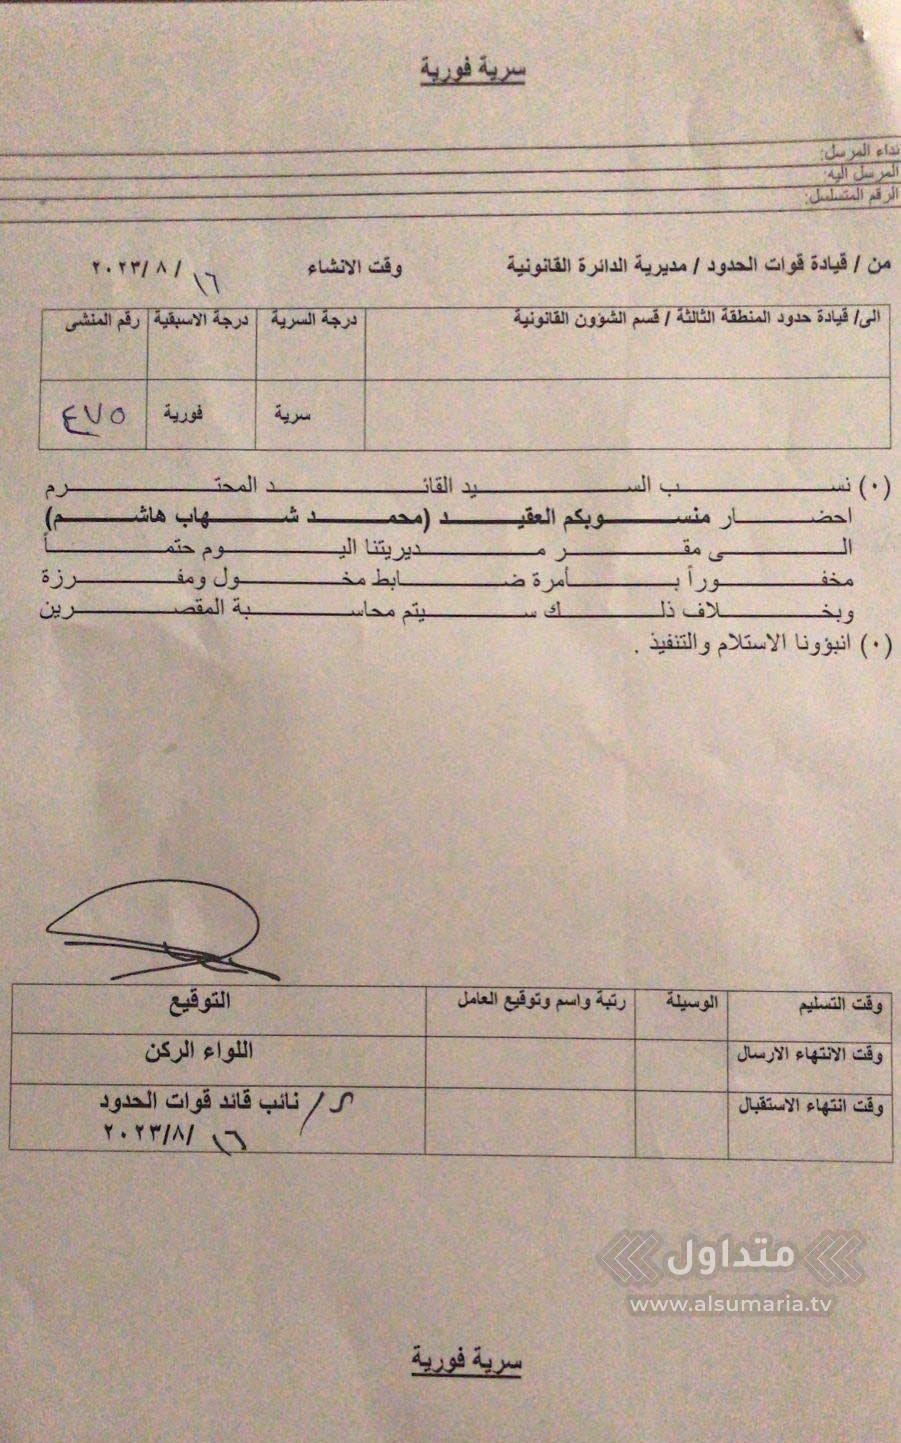 سرية فورية
نداء المرسل:
المرسل اليه:
الرقم المتسلسل:
من / قيادة قوات الحدود / مديرية الدائرة القانونية وقت الانشاء ١٦ / ٨ /٢٠٢٣
الى/ قيادة حدود المنطقة الثالثة / قسم الشؤون القانونية درجة السرية درجة الاسبقية رقم المنشى
سرية فورية ٤٧٥
(٠) نسب السيد القائد المحترم
احضار منسوبكم العقيد (محمد شهاب هاشم)
الى مقر مديريتنا اليوم حتماً
مخفوراً بأمرة ضابط مخول ومفرزة
وبخلاف ذلك سيتم محاسبة المقصرين
(٠) انبؤونا الاستلام والتنفيذ .
وقت التسليم الوسيلة رتبة واسم وتوقيع العامل التوقيع
وقت الانتهاء الارسال اللواء الركن
وقت انتهاء الاستقبال / نائب قائد قوات الحدود
١٦ /٢٠٢٣/٨
متداول
www.alsumaria.tv
سرية فورية